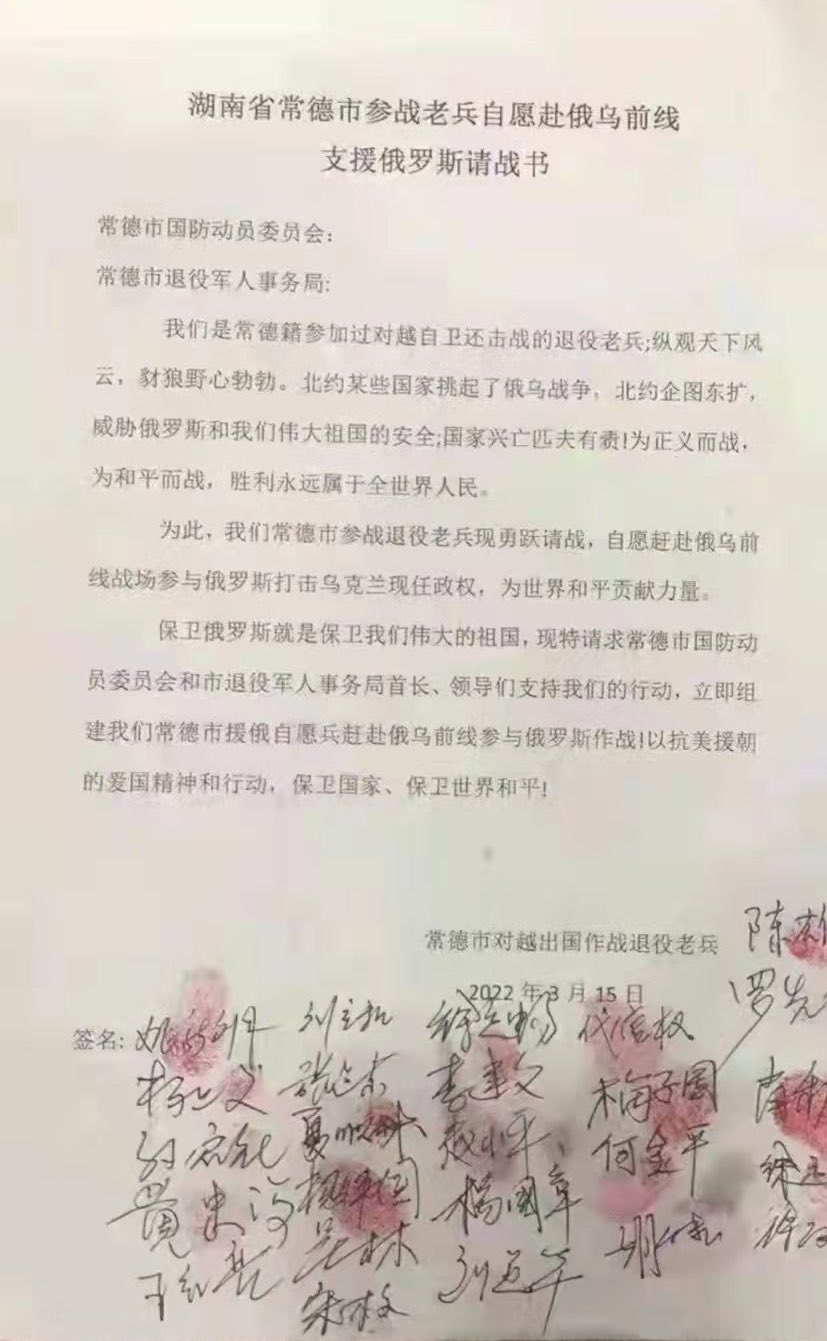 湖南省常德市参战老兵自愿赴俄乌前线
支援俄罗斯请战书
常德市国防动员委员会：
常德市退役军人事务局:
我们是常德籍参加过对越自卫还击战的退役老兵;纵观天下风
云，豺狼野心勃勃。北约某些国家挑起了俄乌战争，北约企图东扩，
威胁俄罗斯和我们伟大祖国的安全;国家兴亡匹夫有责!为正义而战，
为和平而战，胜利永远属于全世界人民。
为此，我们常德市参战退役老兵现勇跃请战，自愿赶赴俄乌前
线战场参与俄罗斯打击乌克兰现任政权，为世界和平贡献力量。
保卫俄罗斯就是保卫我们伟大的祖国，现特请求常德市国防动
员委员会和市退役军人事务局首长、领导们支持我们的行动，立即组
建我们常德市援俄自愿兵赶赴俄乌前线参与俄罗斯作战!以抗美援朝
的爱国精神和行动，保卫国家、保卫世界和平!
常德市对越出国作战退役老兵
2022 年 3 月 15 日
签名:
李建文 梅子圆
何金平
杨国章